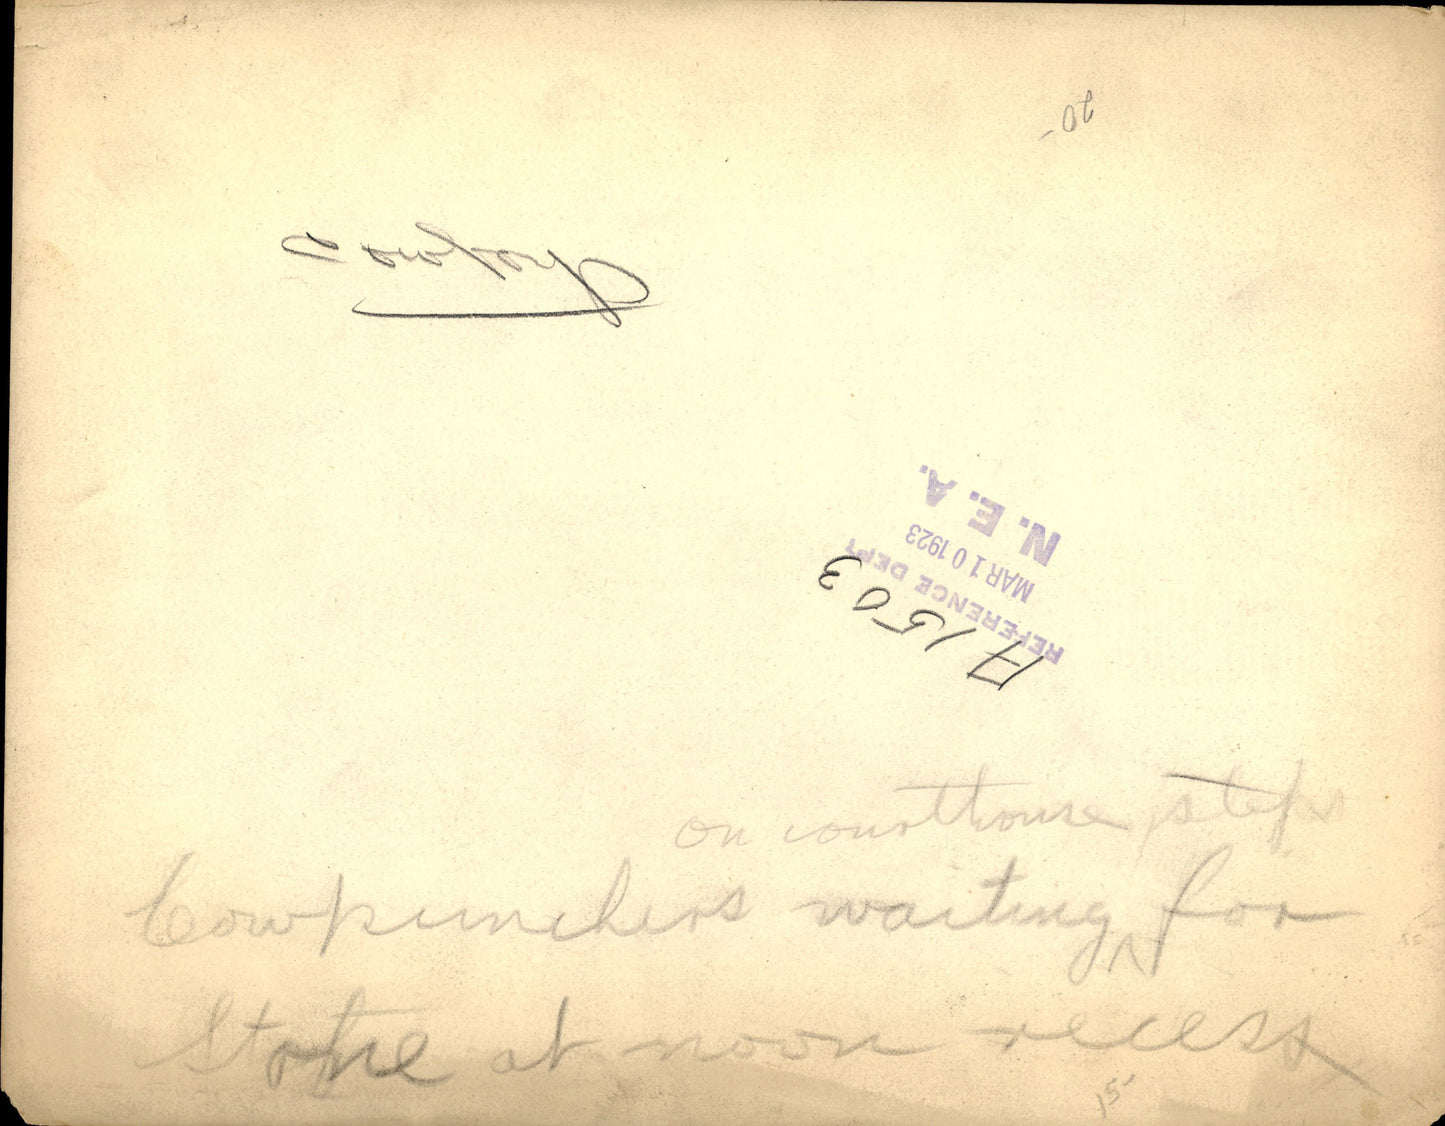 20-
Cowboy
N. E. A.
MAR 10 1923
REFERENCE DEPT
A1503
on courthouse steps
Cowpunchers waiting for
Stone at noon recess
15-